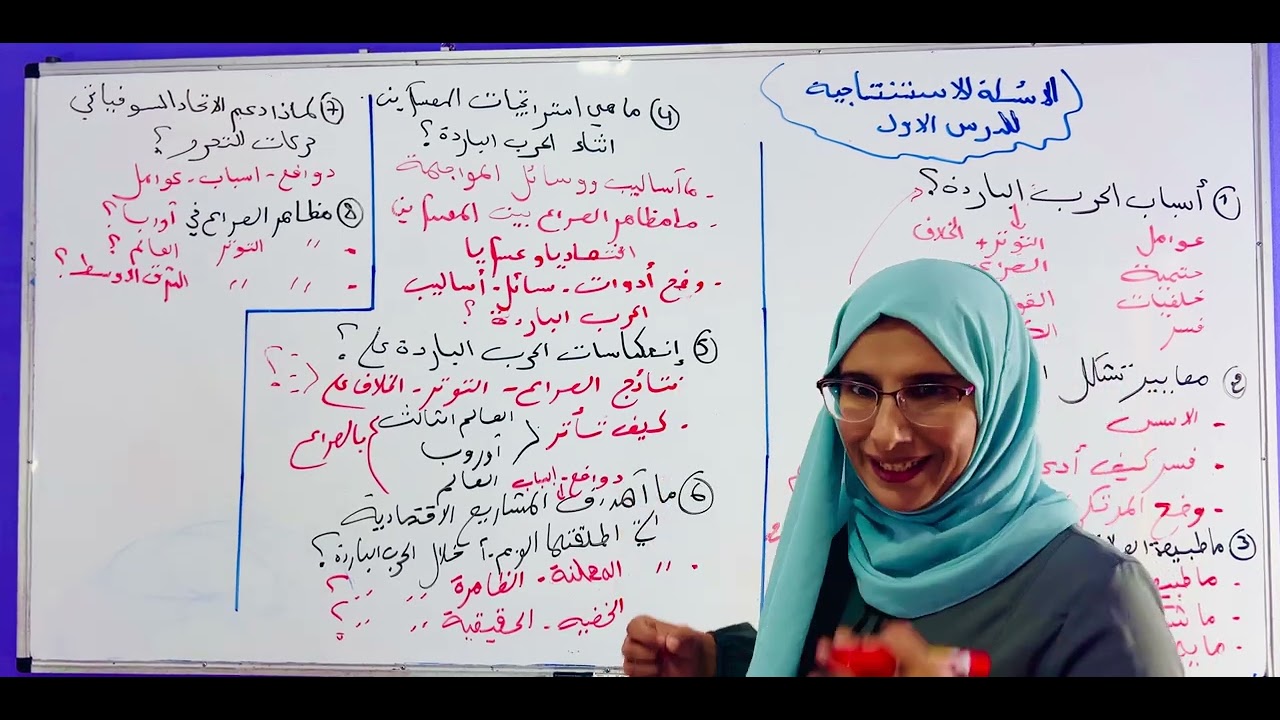 الاسئلة الاستنتاجية
للدرس الاول
① أسباب الحرب الباردة؟
عوامل التوتر + الخلاف
حتمية
خلفيات
فسر
② معايير تشكل
- الاسس
- فسر كيف أدى
- وضح
③ ما طبيعة
-
-
-
④ ما هي استراتيجيات المعسكرين
اثناء الحرب الباردة؟
- ما أساليب ووسائل المواجهة
- ما مظاهر الصراع بين المعسكرين
اقتصاديا وعسكريا
- وضح أدوات - سائل - أساليب
الحرب الباردة؟
⑤ إنعكاسات الحرب الباردة على؟
نتائج الصراع - التوتر - الخلاف على (...)؟
العالم الثالث
- كيف تأثر أوروبا بالصراع
العالم
دوافع - اسباب
⑥ ما أهداف المشاريع الاقتصادية
التي اطلقتها الو.م.أ خلال الحرب الباردة؟
- " المعلنة - الظاهرة " "؟
الخفية - الحقيقية " "؟
⑦ لماذا دعم الاتحاد السوفياتي
حركات التحرر؟
دوافع - اسباب - عوامل
⑧ مظاهر الصراع في أوربا؟
- " التوتر العالم؟
- " " الشرق الاوسط؟